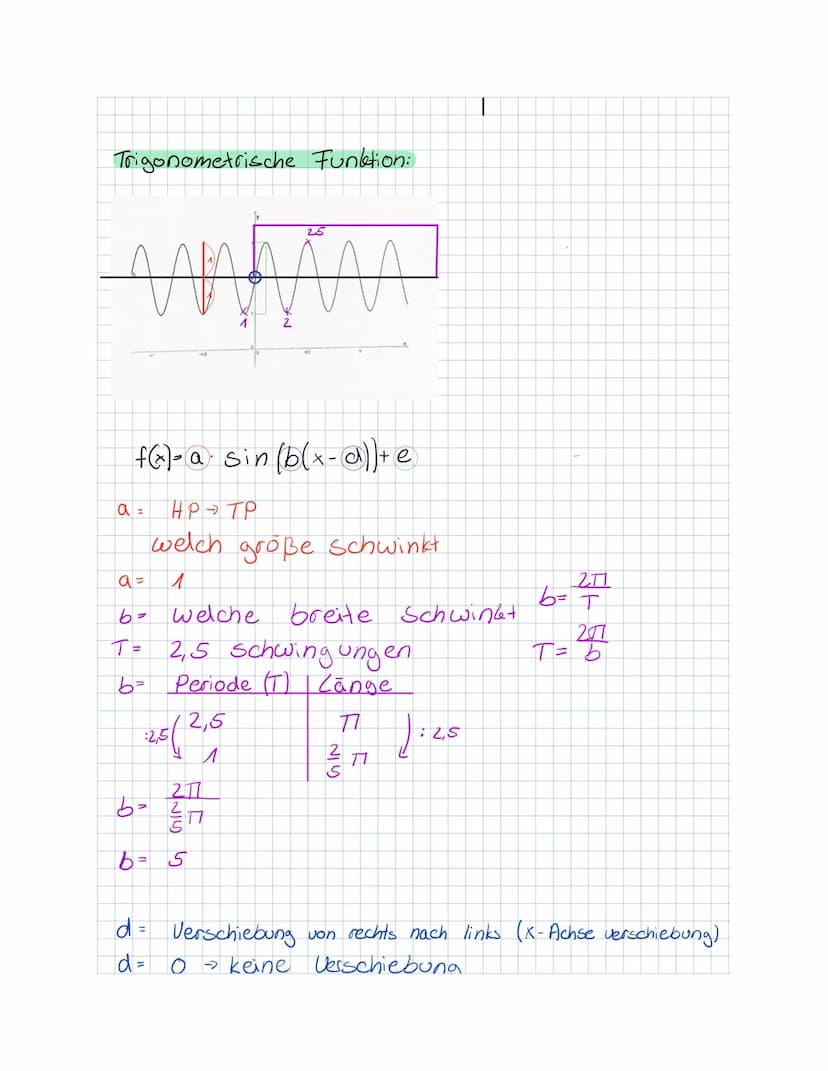 Trigonometrische Funktion:
2,5
1
1
1
2
f(x)=a· sin (b(x-d))+e
a = HP → TP
welch größe schwinkt
a = 1
b= welche breite schwinkt b= 2π/T
T= 2,5 schwingungen T= 2π/b
b= Periode (T) | Länge
:2,5 ( 2,5 | π ) : 2,5
1 | 2/5 π
b= 2π / 2/5 π
b= 5
d= Verschiebung von rechts nach links (x-Achse verschiebung)
d= 0 → keine Verschiebung